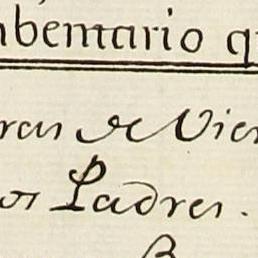 nbentario q
ras de Vien
os Padres.
B